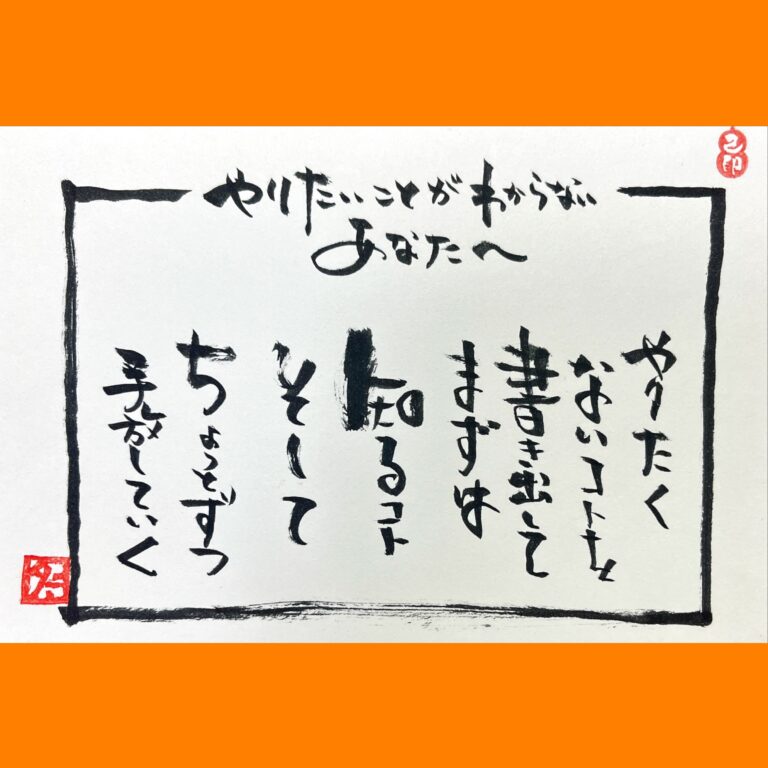 やりたいことがわからない
あなたへ
やりたく
ないコトを
書き出して
まずは
知るコト
そして
ちょっとずつ
手放していく